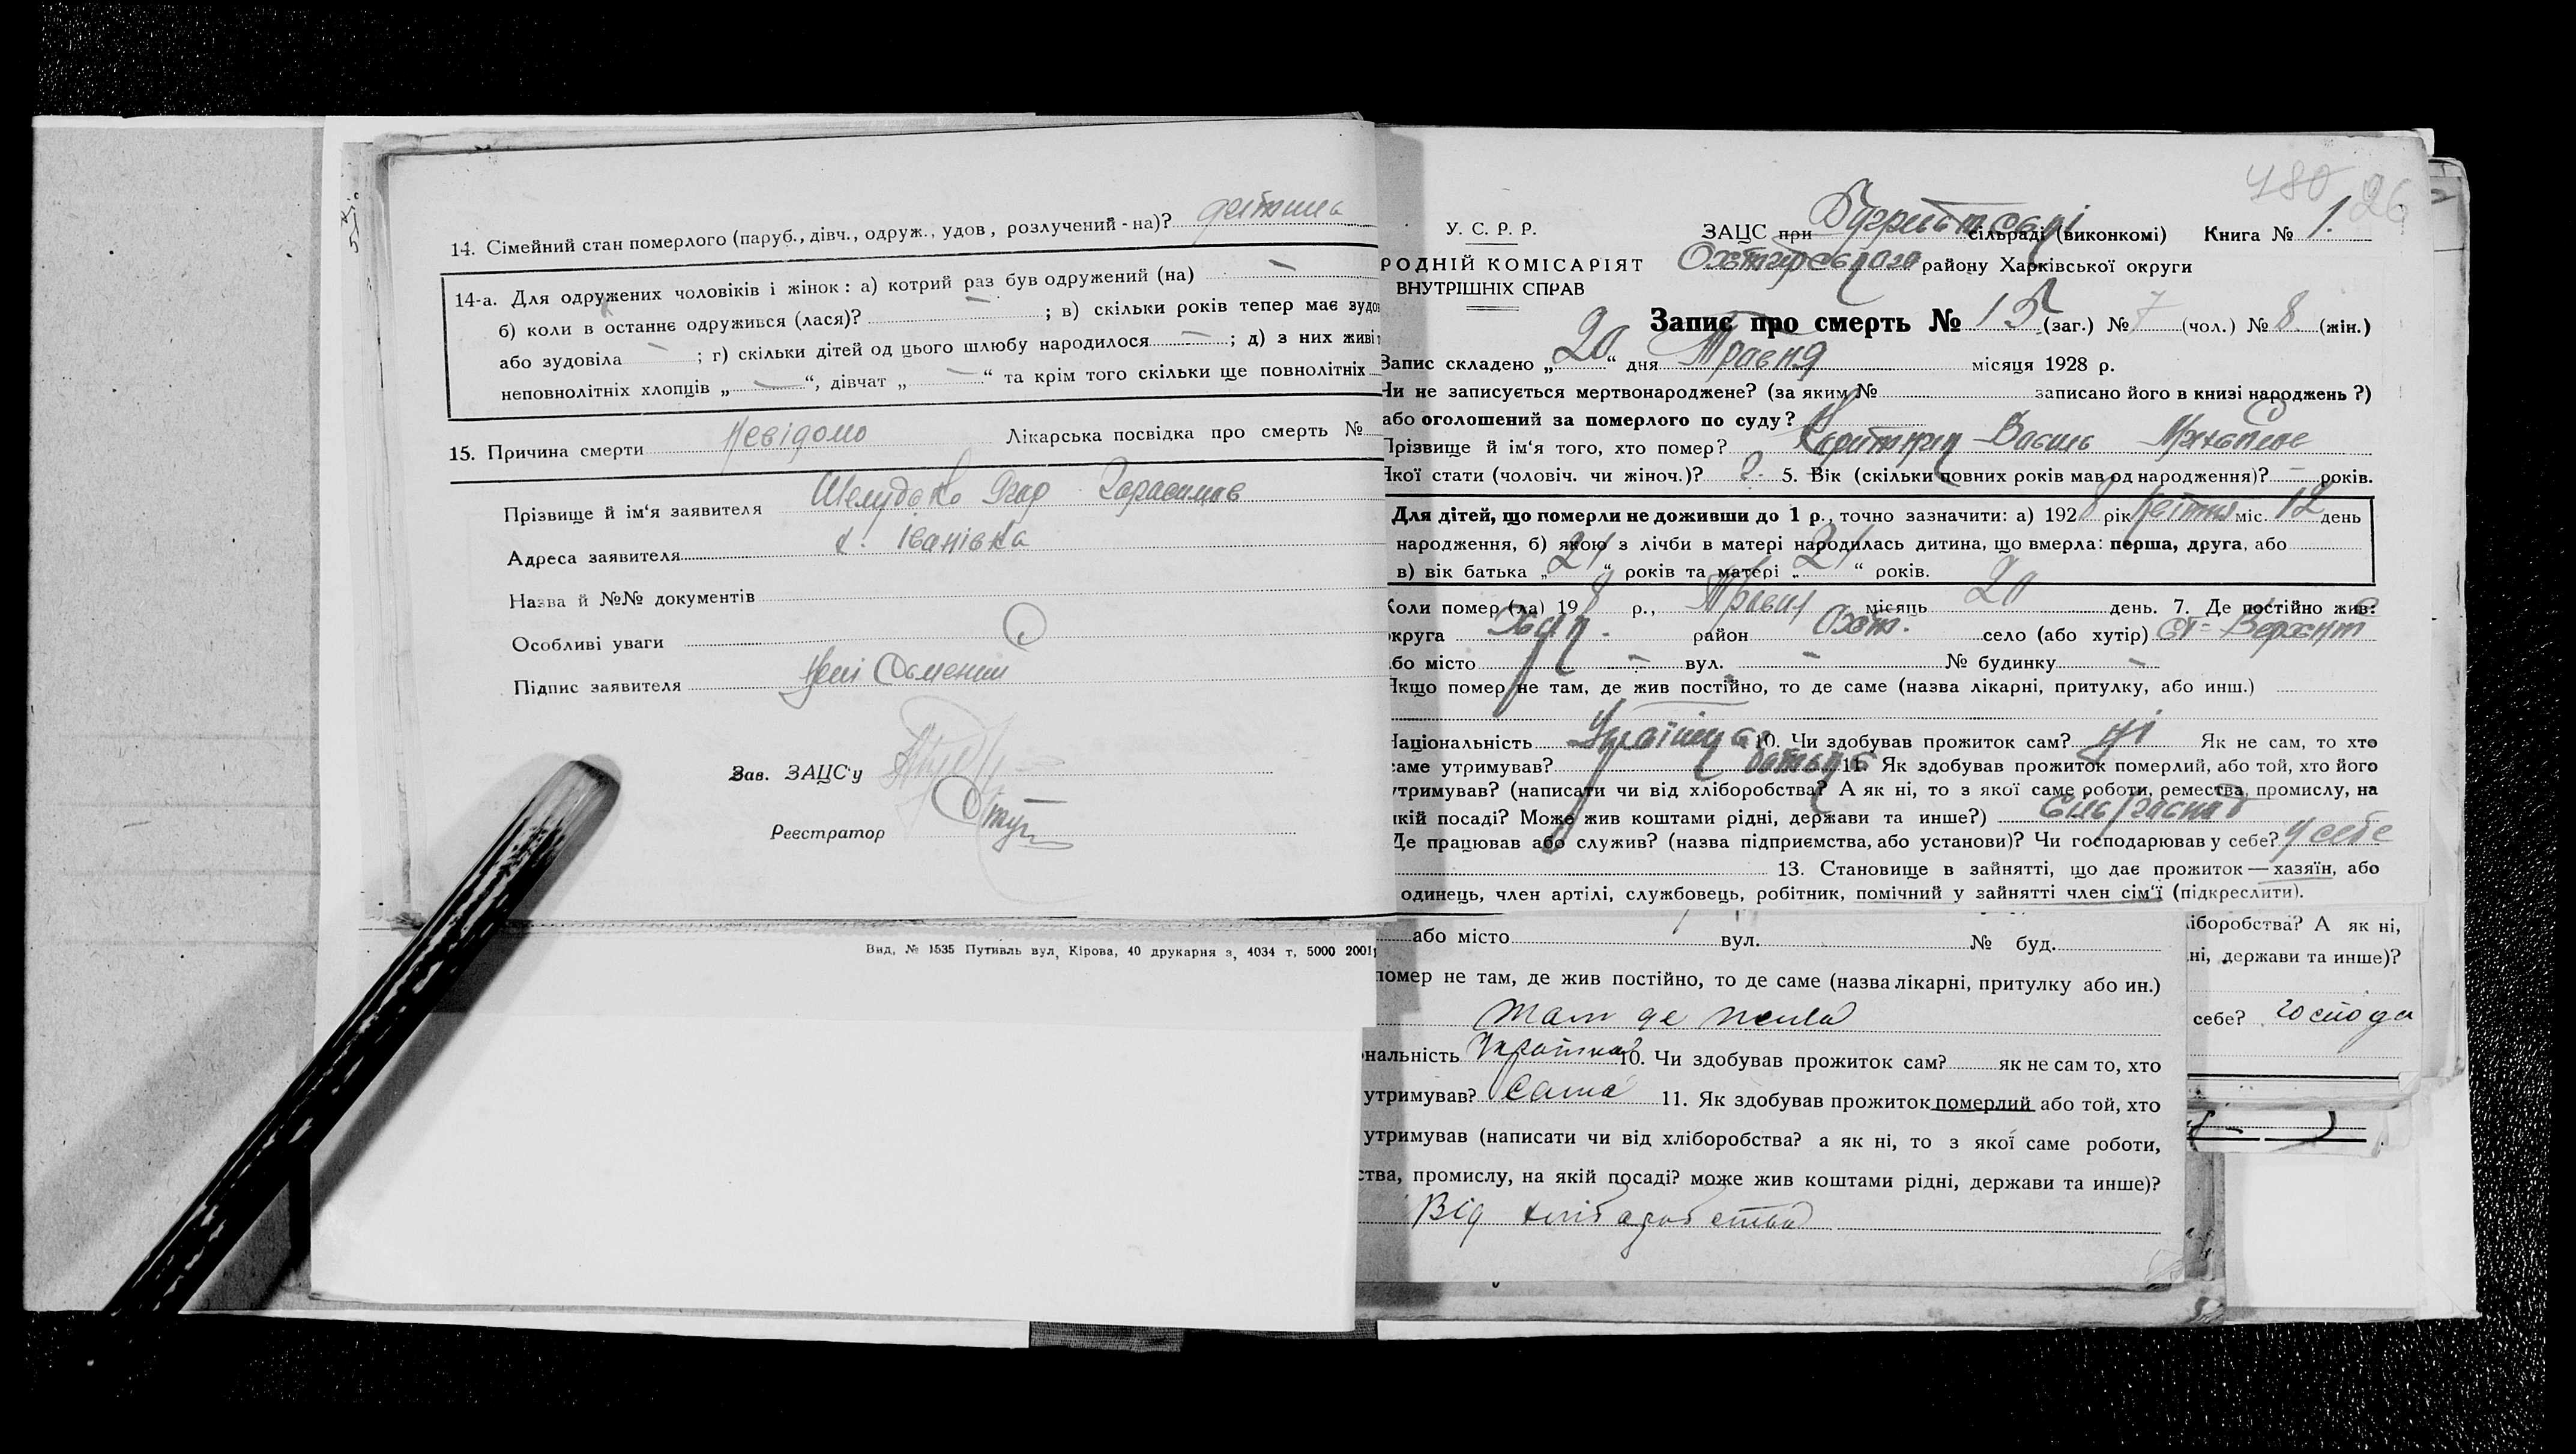 14. Сімейний стан померлого (паруб., дівч., одруж., удов, розлучений - на)? дитина
14-а. Для одружених чоловіків і жінок: а) котрий раз був одружений (на) —
б) коли в останнє одружився (лася)? — ; в) скільки років тепер має зудов
або зудовіла — ; г) скільки дітей од цього шлюбу народилося — ; д) з них живі
неповнолітніх хлопців „ — “, дівчат „ — “ та крім того скільки ще повнолітніх
15. Причина смерти Невідомо Лікарська посвідка про смерть №
Прізвище й ім‘я заявителя
Адреса заявителя х. Іванівка
Назва й №№ документів
Особливі уваги
Підпис заявителя
Зав. ЗАЦС‘у
Реєстратор
Вид, № 1535 Путивль вул, Кірова, 40 друкарня з, 4034 т. 5000 2001
480 26
У. С. Р. Р.
ЗАЦС при сільраді (виконкомі) Книга № 1.
РОДНІЙ КОМІСАРІЯТ
району Харківської округи
ВНУТРІШНІХ СПРАВ
Запис про смерть № 15 (заг.) № 7 (чол.) № 8 (жін.)
Запис складено „ 20 “ дня Травня місяця 1928 р.
Чи не записується мертвонароджене? (за яким № записано його в книзі народжень ?)
або оголошений за померлого по суду?
Прізвище й ім‘я того, хто помер?
Якої стати (чоловіч. чи жіноч.)? 5. Вік (скільки повних років мав од народження)? — років.
Для дітей, що померли не доживши до 1 р., точно зазначити: а) 1928 рік Квітня міс. 12 день
народження, б) якою з лічби в матері народилась дитина, що вмерла: перша, друга, або
в) вік батька „ 21 “ років та матері „ 21 “ років.
Коли помер (ла) 198 р., Травня місяць 20 день. 7. Де постійно жив:
округа Хар. район Охт. село (або хутір)
або місто — вул. — № будинку —
Якщо помер не там, де жив постійно, то де саме (назва лікарні, притулку, або инш.)
Національність 10. Чи здобував прожиток сам? ні Як не сам, то хто
саме утримував? батько 11. Як здобував прожиток померлий, або той, хто його
утримував? (написати чи від хліборобства? А як ні, то з якої саме роботи, ремества, промислу, на
якій посаді? Може жив коштами рідні, держави та инше?)
Де працював або служив? (назва підприємства, або установи)? Чи господарював у себе? у себе
13. Становище в зайнятті, що дає прожиток — хазяїн, або
одинець, член артілі, службовець, робітник, помічний у зайнятті член сім‘ї (підкреслити).
або місто вул. № буд.
помер не там, де жив постійно, то де саме (назва лікарні, притулку або ин.)
там де жила
ональність Українка 10. Чи здобував прожиток сам? як не сам то, хто
утримував? Сама 11. Як здобував прожиток померлий або той, хто
утримував (написати чи від хліборобства? а як ні, то з якої саме роботи,
ства, промислу, на якій посаді? може жив коштами рідні, держави та инше)?
Від хліборобства
ліборобства? А як ні,
ні, держави та инше)?
себе? господа